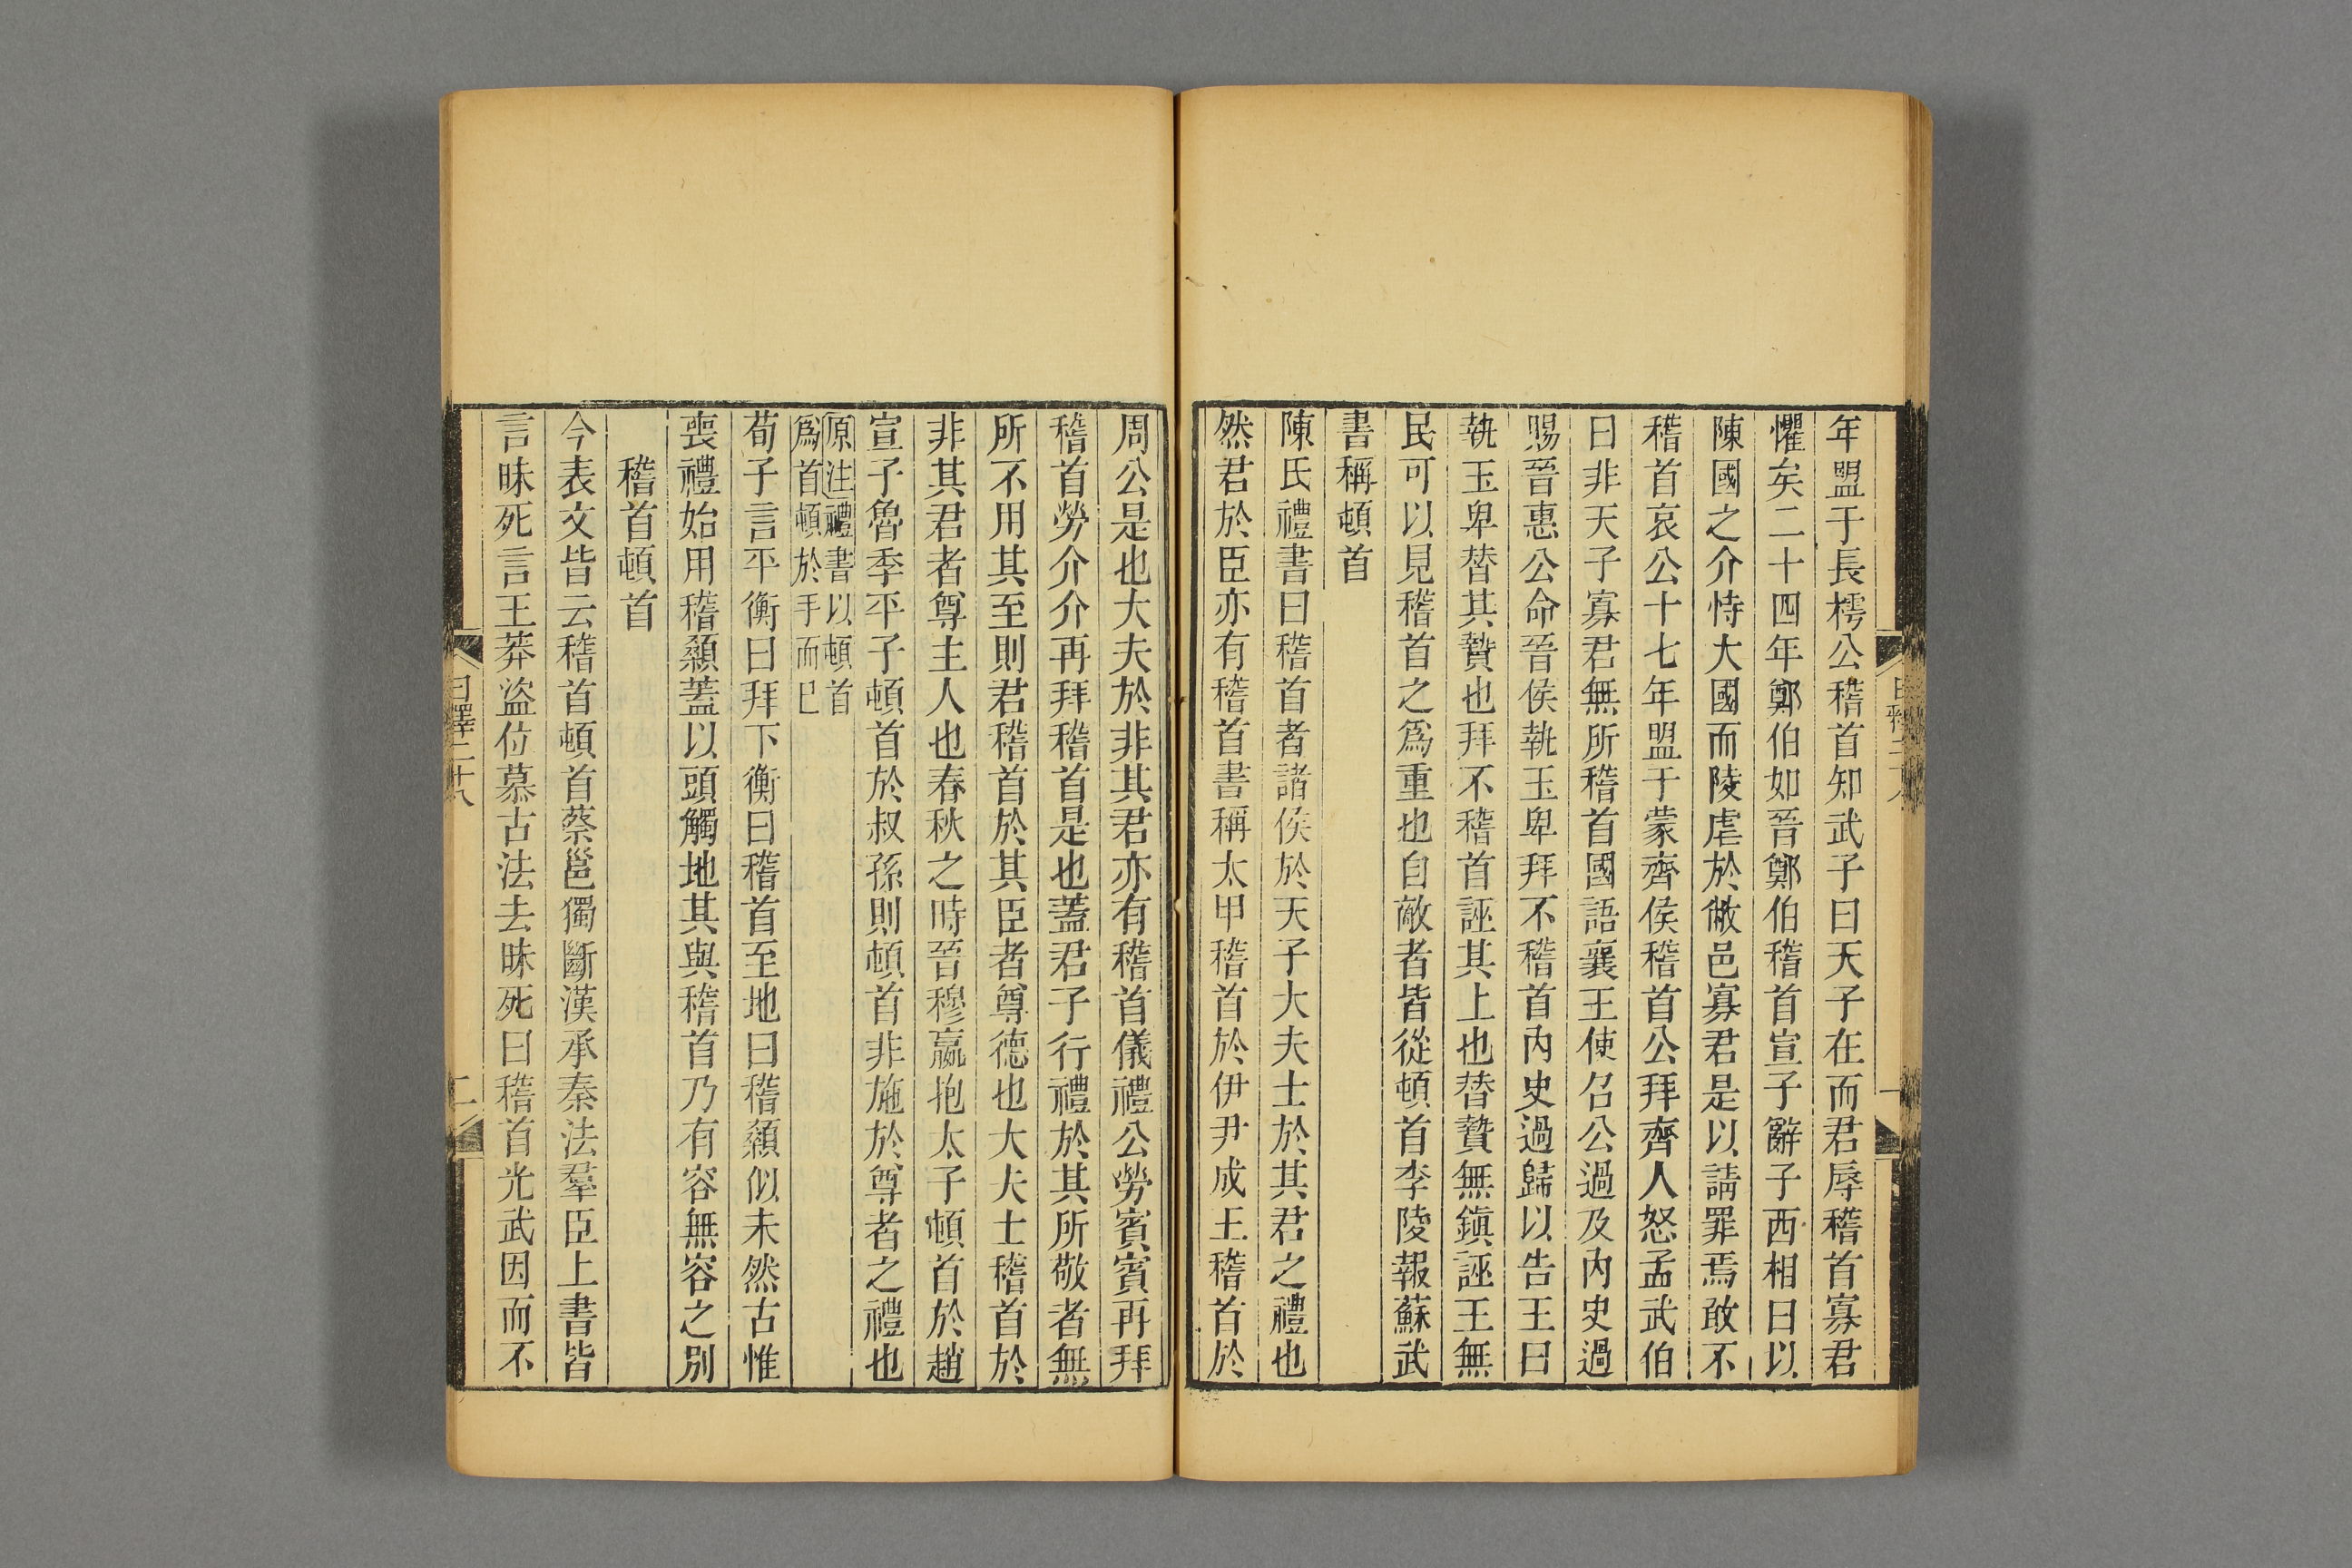 年盟于長樗公稽首知武子曰天子在而君辱稽首寡君
懼矣二十四年鄭伯如晉鄭伯稽首宣子辭子西相曰以
陳國之介恃大國而陵虐於敝邑寡君是以請罪焉敢不
稽首哀公十七年盟于蒙齊侯稽首公拜齊人怒孟武伯
曰非天子寡君無所稽首國語襄王使召公過及內史過
賜晉惠公命晉侯執玉卑拜不稽首內史過歸以告王曰
執玉卑替其贄也拜不稽首誣其上也替贄無鎮誣王無
民可以見稽首之爲重也自敵者皆從頓首李陵報蘇武
書稱頓首
陳氏禮書曰稽首者諸侯於天子大夫士於其君之禮也
然君於臣亦有稽首書稱太甲稽首於伊尹成王稽首於
周公是也大夫於非其君亦有稽首儀禮公勞賓賓再拜
稽首勞介介再拜稽首是也蓋君子行禮於其所敬者無
所不用其至則君稽首於其臣者尊德也大夫士稽首於
非其君者尊主人也春秋之時晉穆嬴抱太子頓首於趙
宣子魯季平子頓首於叔孫則頓首非施於尊者之禮也
原注禮書以頓首
爲首頓於手而已
荀子言平衡曰拜下衡曰稽首至地曰稽顙似未然古惟
喪禮始用稽顙蓋以頭觸地其與稽首乃有容無容之別
稽首頓首
今表文皆云稽首頓首蔡邕獨斷漢承秦法羣臣上書皆
言昧死言王莽盜位慕古法去昧死曰稽首光武因而不
日釋二十八
二